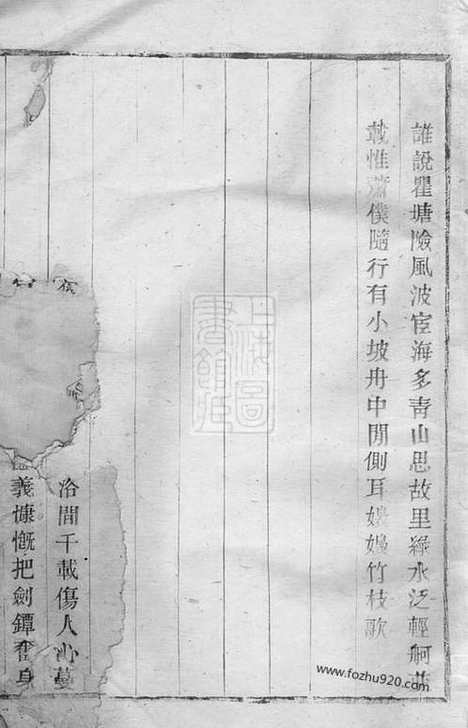 誰說瞿塘險風波宦海多青山思故里綠水泛輕舸
載惟僕隨行有小坡舟中閒側耳竹枝歌
洽間千載傷人心蔓
義慷慨把劍鐔奮身
上海圖
書館藏
www.fozhu920.com